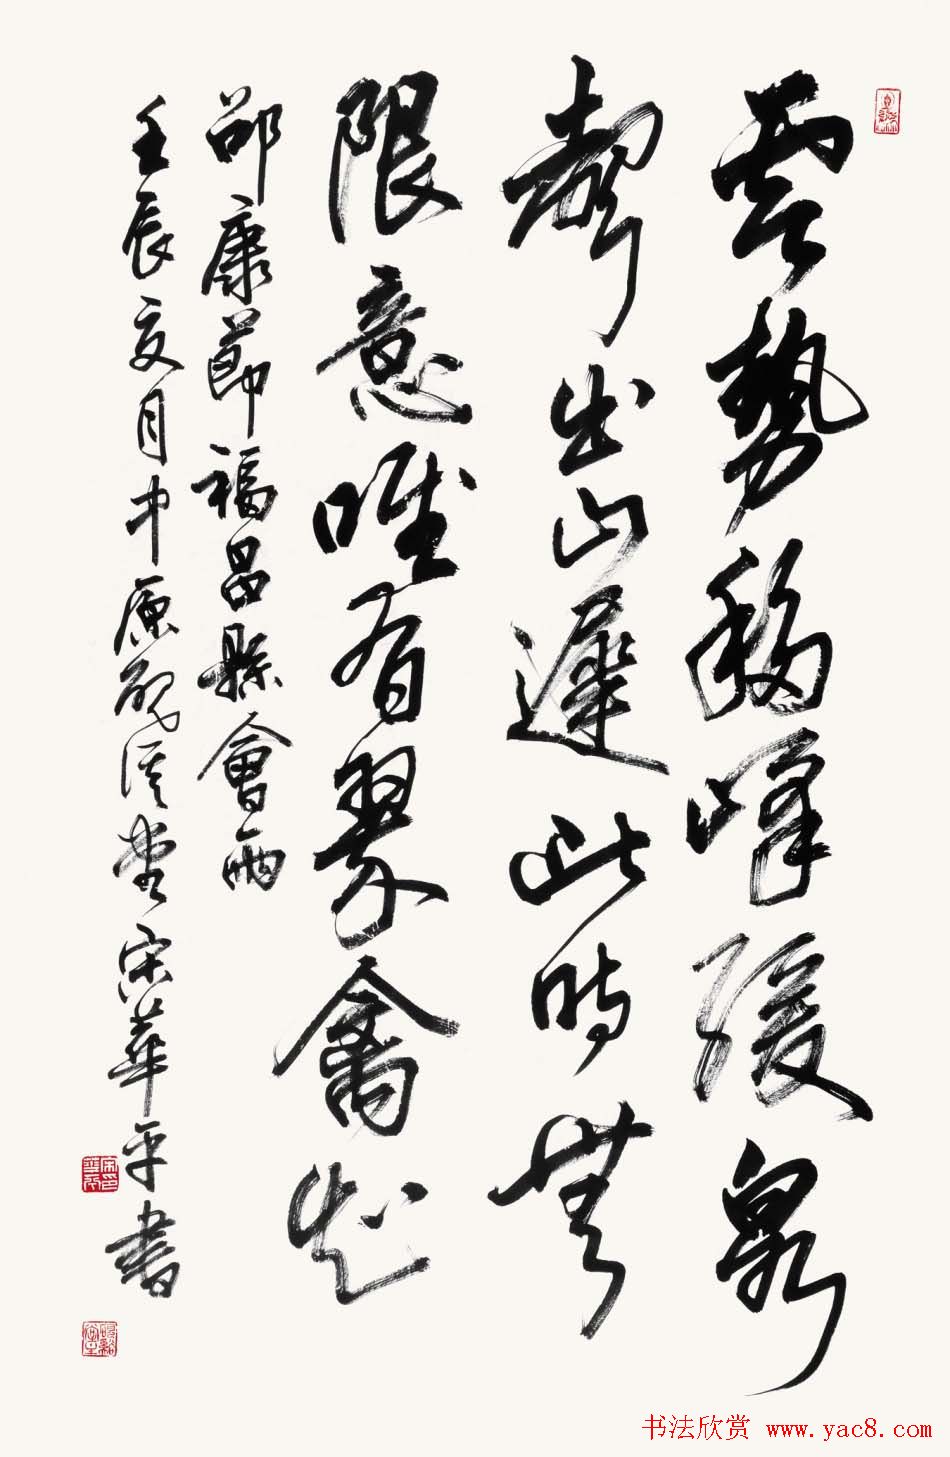 雲勢移峰緩泉
聲出山遲此時無
限意唯有翠禽知
邵康節福昌縣會雨
壬辰夏月中原硯溪堂宋華平書
书法欣赏 www.yac8.com